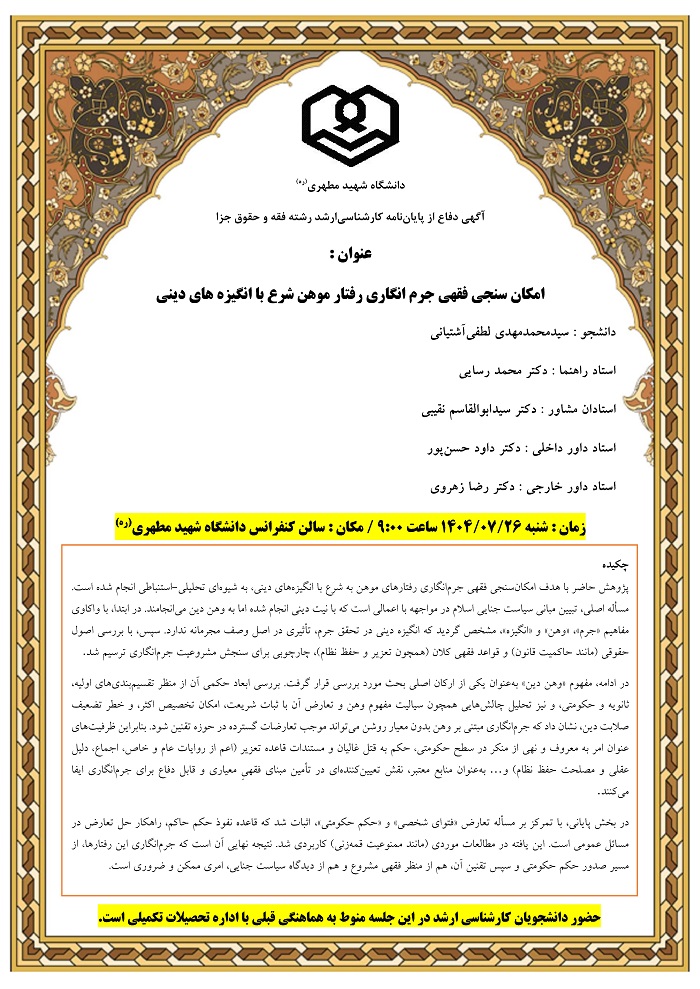 دانشگاه شهید مطهری(ره)
آگهی دفاع از پایان‌نامه کارشناسی‌ارشد رشته فقه و حقوق جزا
عنوان :
امکان سنجی فقهی جرم انگاری رفتار موهن شرع با انگیزه های دینی
دانشجو : سیدمحمدمهدی لطفی‌آشتیانی
استاد راهنما : دکتر محمد رسایی
استادان مشاور : دکتر سیدابوالقاسم نقیبی
استاد داور داخلی : دکتر داود حسن‌پور
استاد داور خارجی : دکتر رضا زهروی
زمان : شنبه ۱۴۰۴/۰۷/۲۶ ساعت ۹:۰۰ / مکان : سالن کنفرانس دانشگاه شهید مطهری(ره)
چکیده
پژوهش حاضر با هدف امکان‌سنجی فقهی جرم‌انگاری رفتارهای موهن به شرع با انگیزه‌های دینی، به شیوه‌ای تحلیلی-استنباطی انجام شده است.
مسأله اصلی، تبیین مبانی سیاست جنایی اسلام در مواجهه با اعمالی است که با نیت دینی انجام شده اما به وهن دین می‌انجامند. در ابتدا، با واکاوی
مفاهیم «جرم»، «وهن» و «انگیزه»، مشخص گردید که انگیزه دینی در تحقق جرم، تأثیری در اصل وصف مجرمانه ندارد. سپس، با بررسی اصول
حقوقی (مانند حاکمیت قانون) و قواعد فقهی کلان (همچون تعزیر و حفظ نظام)، چارچوبی برای سنجش مشروعیت جرم‌انگاری ترسیم شد.
در ادامه، مفهوم «وهن دین» به‌عنوان یکی از ارکان اصلی بحث مورد بررسی قرار گرفت. بررسی ابعاد حکمی آن از منظر تقسیم‌بندی‌های اولیه،
ثانویه و حکومتی، و نیز تحلیل چالش‌هایی همچون سیالیت مفهوم وهن و تعارض آن با ثبات شریعت، امکان تخصیص اکثر، و خطر تضعیف
صلابت دین، نشان داد که جرم‌انگاری مبتنی بر وهن بدون معیار روشن می‌تواند موجب تعارضات گسترده در حوزه تقنین شود. بنابراین ظرفیت‌های
عنوان امر به معروف و نهی از منکر در سطح حکومتی، حکم به قتل غالیان و مستندات قاعده تعزیر (اعم از روایات عام و خاص، اجماع، دلیل
عقلی و مصلحت حفظ نظام) و... به‌عنوان منابع معتبر، نقش تعیین‌کننده‌ای در تأمین مبنای فقهیِ معیاری و قابل دفاع برای جرم‌انگاری ایفا
می‌کنند.
در بخش پایانی، با تمرکز بر مسأله تعارض «فتوای شخصی» و «حکم حکومتی»، اثبات شد که قاعده نفوذ حکم حاکم، راهکار حل تعارض در
مسائل عمومی است. این یافته در مطالعات موردی (مانند ممنوعیت قمه‌زنی) کاربردی شد. نتیجه نهایی آن است که جرم‌انگاری این رفتارها، از
مسیر صدور حکم حکومتی و سپس تقنین آن، هم از منظر فقهی مشروع و هم از دیدگاه سیاست جنایی، امری ممکن و ضروری است.
حضور دانشجویان کارشناسی ارشد در این جلسه منوط به هماهنگی قبلی با اداره تحصیلات تکمیلی است.